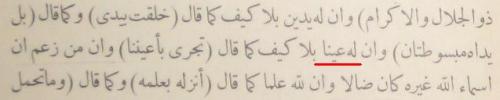 ذو الجلال والاكرام) وان له يدين بلا كيف كما قال (خلقت بيدى) وكما قال (بل
يداه مبسوطتان) وان له عينا بلا كيف كما قال (تجرى بأعيننا) وان من زعم ان
اسماء الله غيره كان ضالا وان لله علما كما قال (أنزله بعلمه) وكما قال (وما تحمل